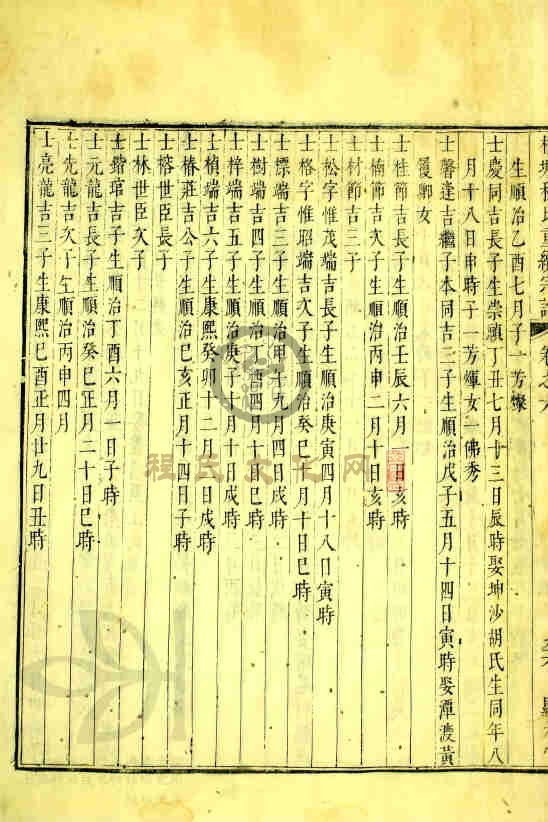 生順治乙酉七月子一芳燦
士慶同吉長子生崇禎丁丑七月十三日辰時娶坤沙胡氏生同年八
月十八日申時子一芳煇女一佛秀
士馨逢吉繼子本同吉三子生順治戊子五月十四日寅時娶潭渡黃
履卿女
士桂節吉長子生順治壬辰六月一日亥時
士楠節吉次子生順治丙申二月十日亥時
士材節吉三子
士松字惟茂端吉長子生順治庚寅四月十八日寅時
士格字惟昭端吉次子生順治癸巳 月十日巳時
士標端吉三子生順治甲午九月四日戌時
士樹端吉四子生順治丁酉四月十日巳時
士梓端吉五子生順治庚子十月十日戌時
士楨端吉六子生康熙癸卯十二月八日戌時
士椿莊吉公子生順治己亥正月十四日子時
士榕世臣長子
士林世臣次子
士鍇琯吉子生順治丁酉六月一日子時
士元龍吉長子生順治癸巳正月二十日巳時
士先龍吉次子生順治丙申四月
士亮龍吉三子生康熙己酉正月廿九日丑時
程氏文化网